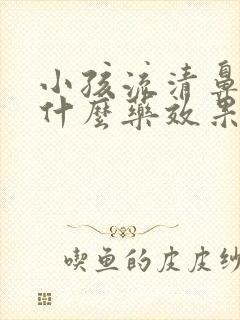 小孩流清鼻
什麼藥效果
喫魚的皮皮纱